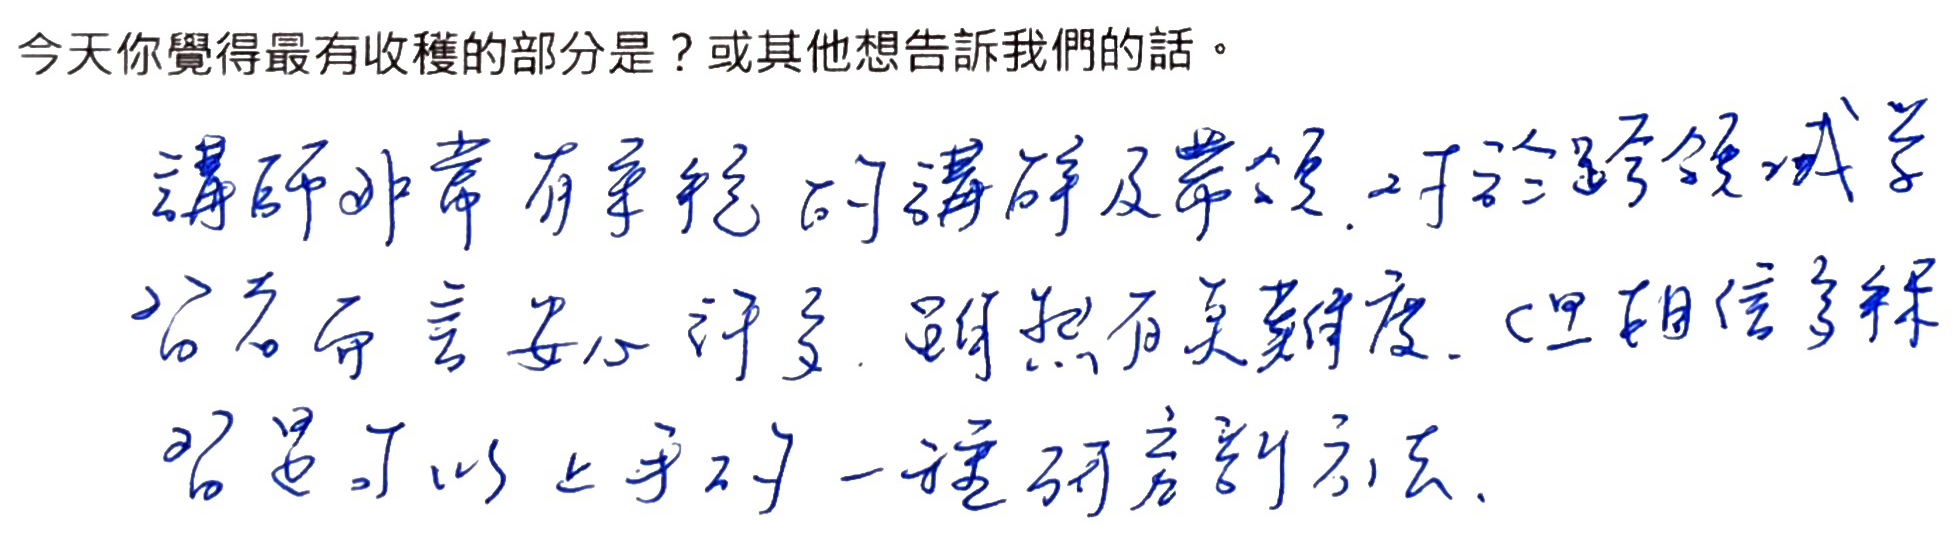 今天你覺得最有收穫的部分是？或其他想告訴我們的話。
講師非常有系統的講解及帶領.對於跨領域学
習者而言安心許多.雖然有其難度.但相信多練
習是可以上手的一種研究方法.